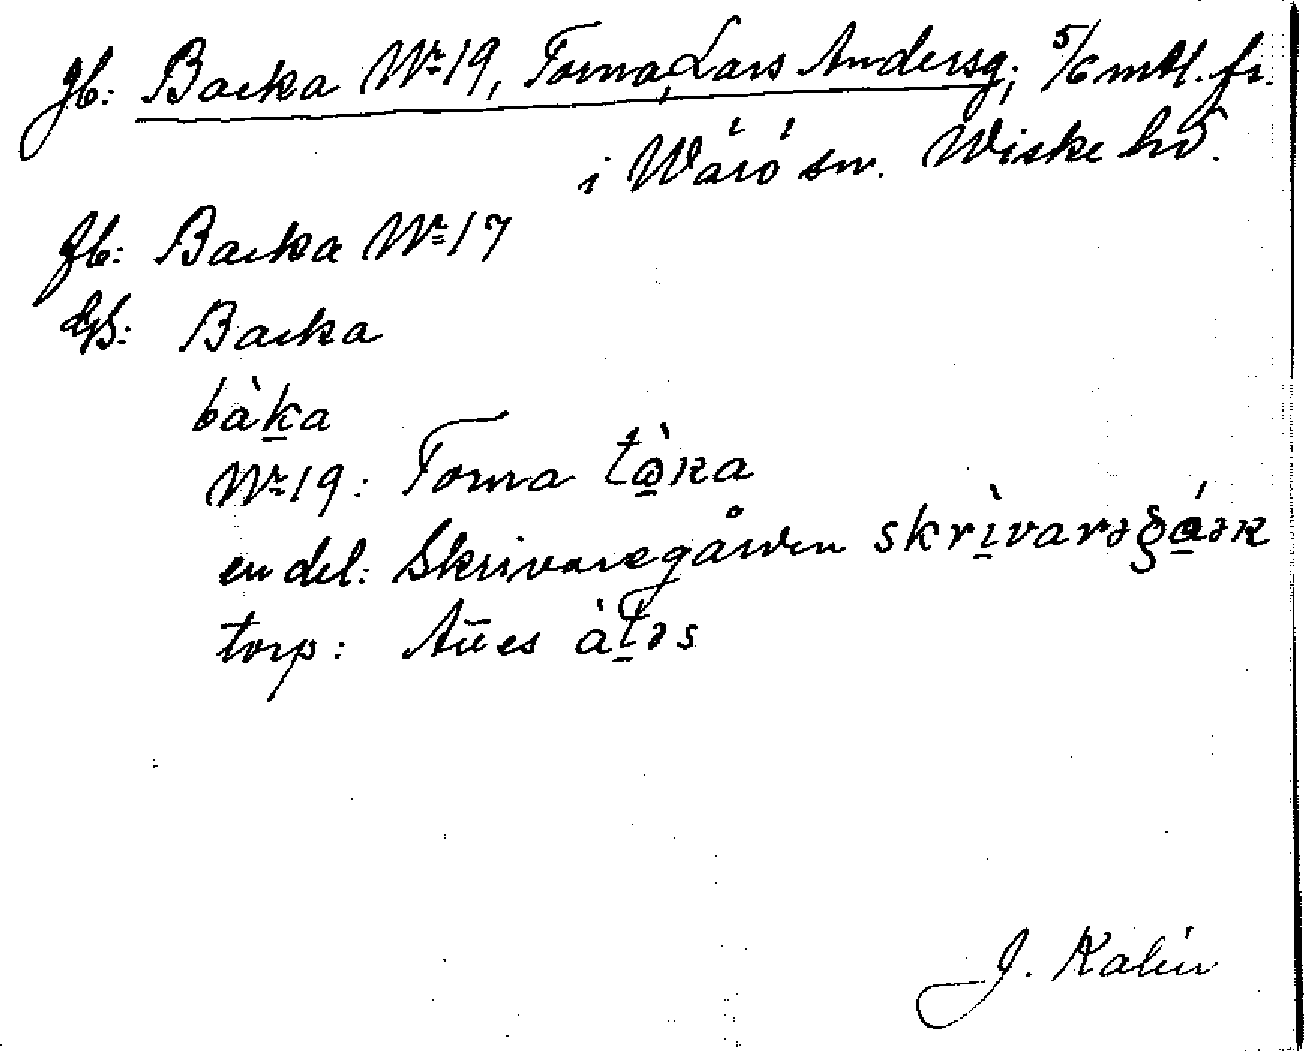 Jb: Backa Nr 19, Torna, Lars Andersg; 5/6 mtl. fr.
i Wärö sn. Wiske hd.
Jb: Backa Nr 17
GS: Backa
bàka
Nr 19: Torna
en del: Skrivaregården
torp:
J. Kalén